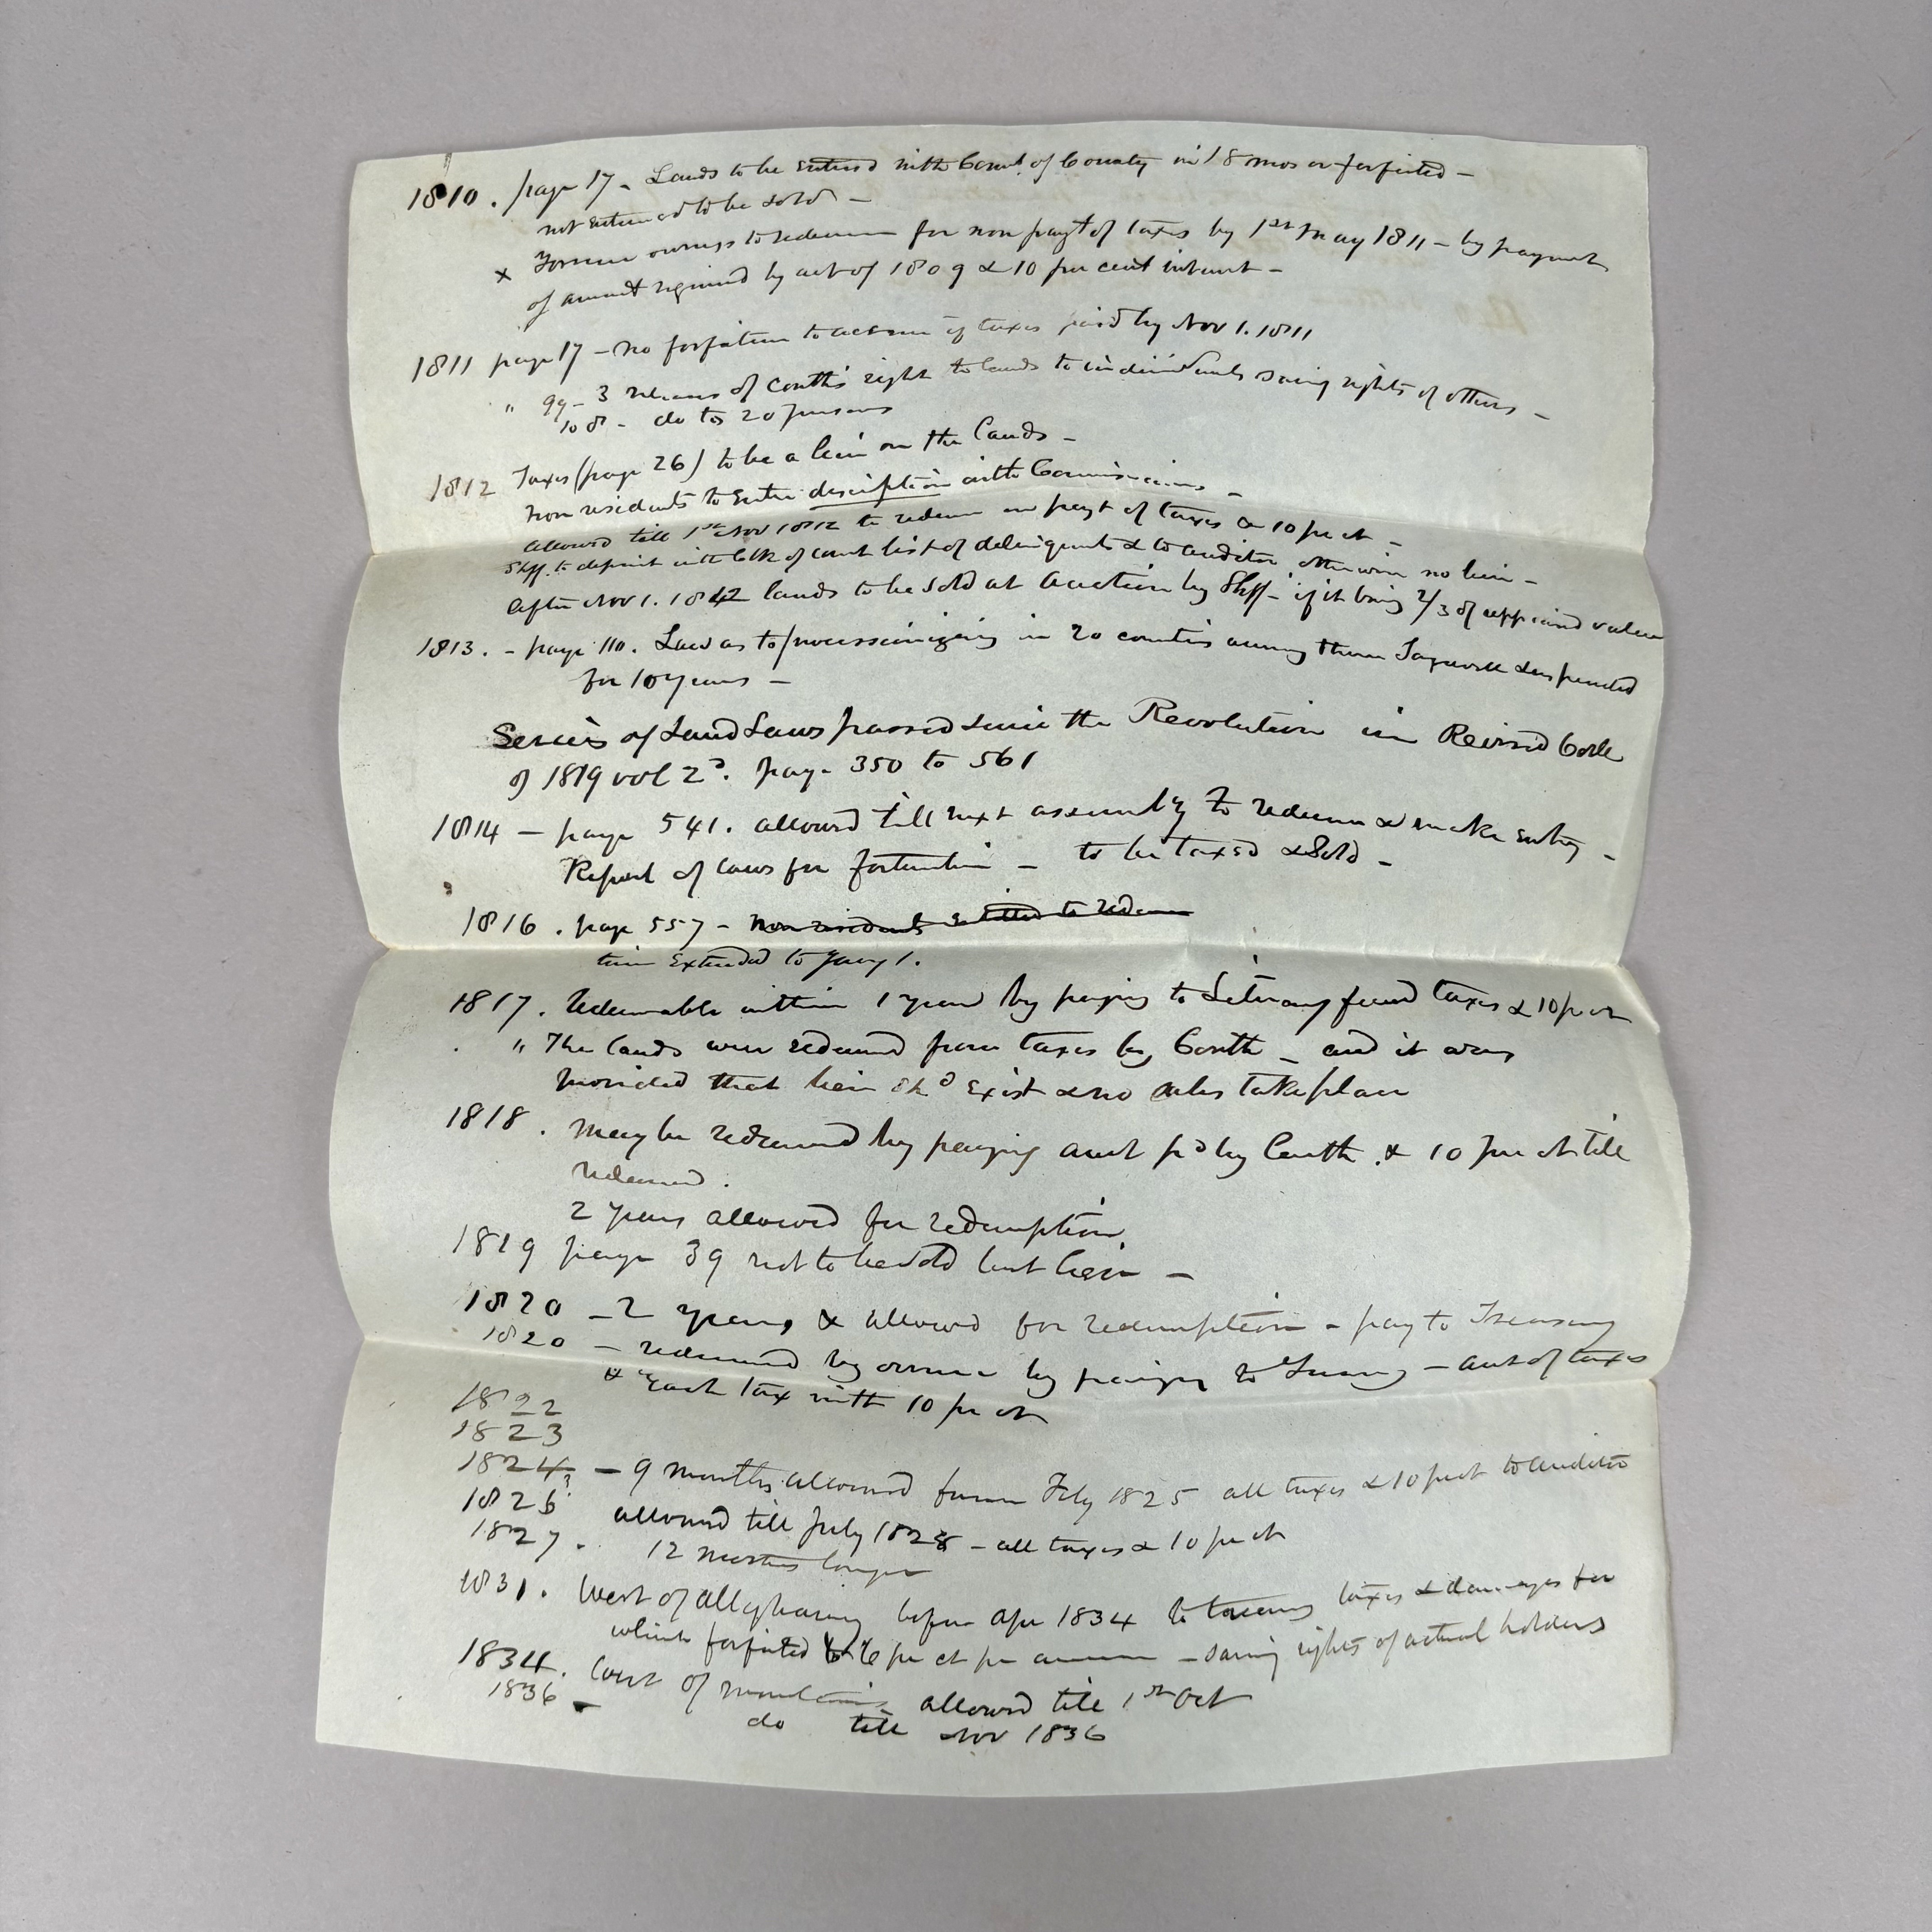 1810. page 17 - Lands to be entered with Comr. of County in 18 mos or forfeited -
not entered to be sold -
x Former owners to redeem for non payt of taxes by 1st May 1811 - by payment
of amount required by act of 1809 & 10 per cent interest -
1811 page 17 - no forfeiture to accrue if taxes paid by Nov 1. 1811
" 99 - 3 releases of Coulth's right to lands to individuals saving rights of others -
108 - do to 20 persons
1812 Taxes (page 26) to be a lien on the lands -
Non residents to enter description with Commissioners -
allowed till 1st Nov 1812 to redeem on payt of taxes & 10 pr ct -
Shff. to deposit with Clk of court list of delinquents & to auditor otherwise no lien -
After Nov 1. 1812 lands to be sold at auction by Shff - if it bring 2/3 of appraised value
1813. - page 110. Law as to processioning in 20 counties among them Tazewell suspended
for 10 years -
Series of Land Laws passed since the Revolution in Revised Code
of 1819 vol 2d. page 350 to 561
1814 - page 541. allowed till next assembly to redeem & make entry -
Repeal of laws for - to be taxed & sold -
1816. page 557 - non residents entitled to redeem
time extended to Jany 1.
1817. Redeemable within 1 year by paying to Literary fund taxes & 10 pr ct
" The lands were redeemed from taxes by Conlth - and it was
provided that lien shd exist & no sales take place
1818. may be redeemed by paying amt pd by Conlth. & 10 per ct till
redeemed.
2 years allowed for redemption.
1819 page 39 not to be sold but lien -
1820 - 2 years & allowed for redemption - pay to Treasury
1820 - redeemed by owner by paying to Treasury - amt of taxes
& each tax with 10 pr ct
1822
1823
1824 - 9 months allowed from Feby 1825 all taxes & 10 pr ct to auditor
1826 allowed till July 1828 - all taxes & 10 pr ct
1827. 12 months longer
1831. West of Alleghany before Apr 1834 to treasury taxes & damages for
which forfeited & 6 pr ct per annum - saving rights of actual holders
1834. West of mountains allowed till 1st Oct
1836 - do till Nov 1836